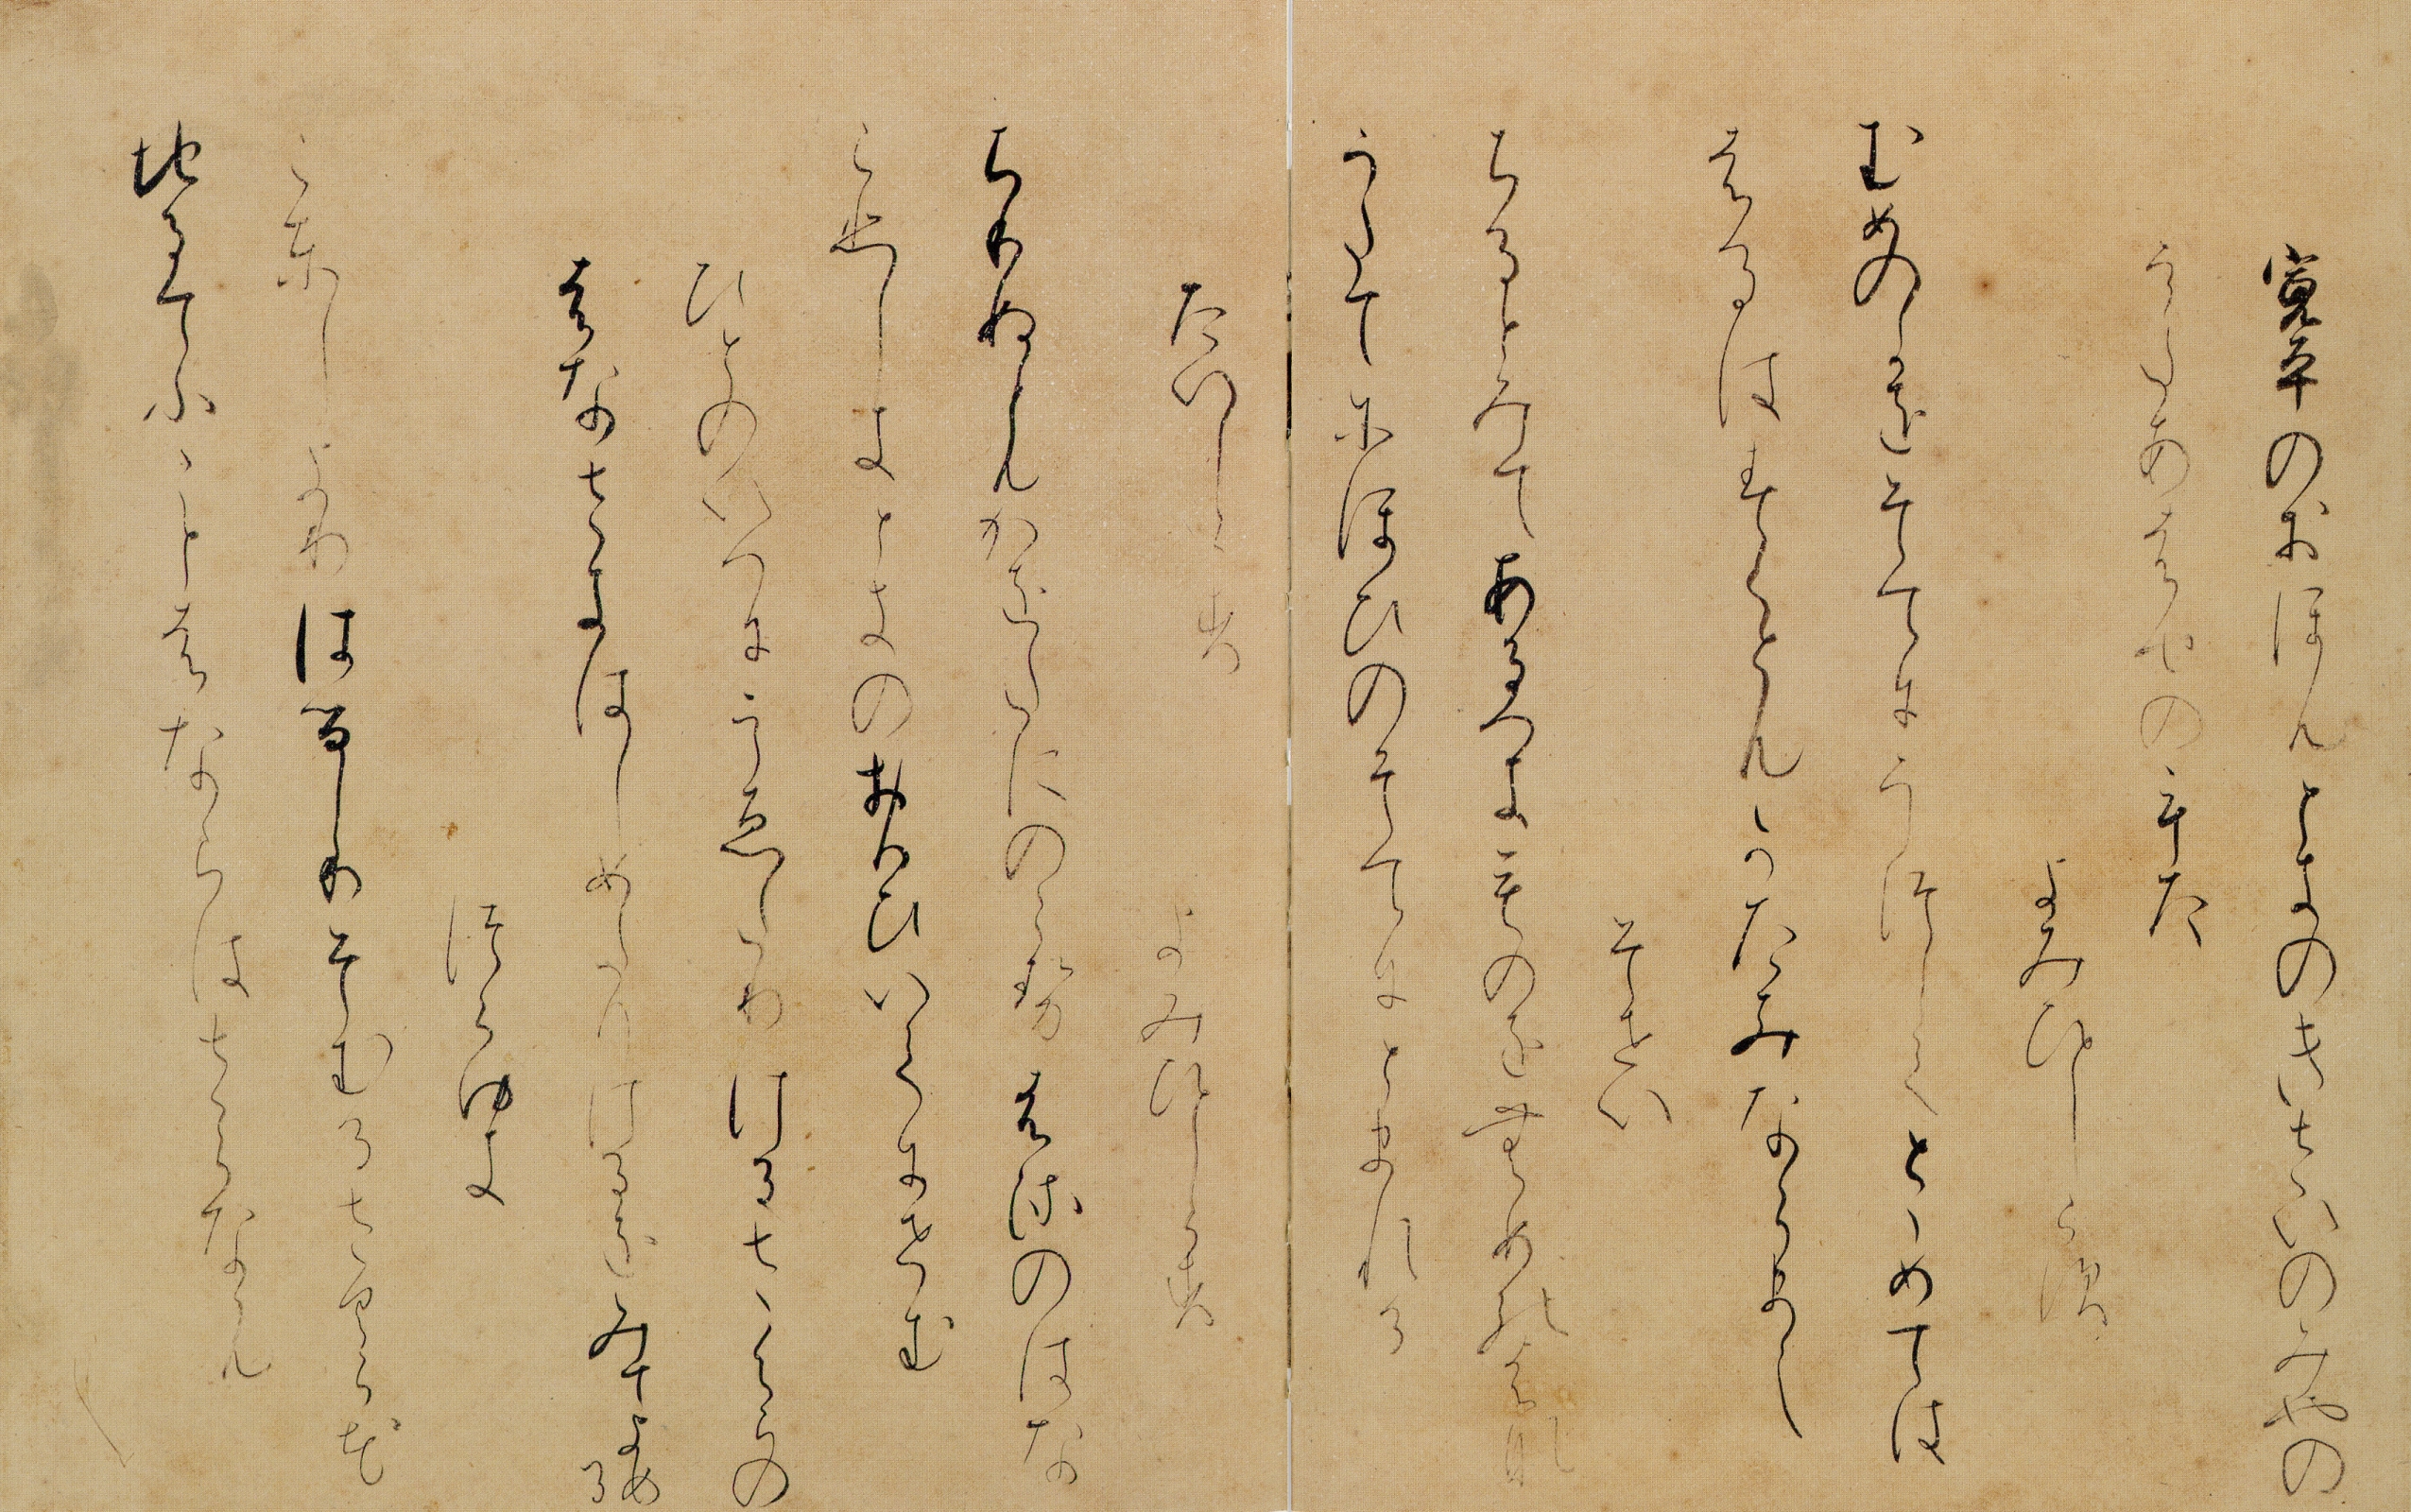 寛平のおほんときのきさいのみやの
うたあはせのうた
よみひとしらす
むめのかをそてにうつしてとゝめては
はるはすくともかたみならまし
そせい
ちるとみてあるへきものをむめのはな
うたてにほひのそてにとまれる
たいしらす
よみひとしらす
ちりぬともかをたにのこせむめのはな
こひしきときのおもひいてにせむ
ひとのいへにうゑたりけるさくらの
はなさきはしめたりけるをみてよめる
つらゆき
ことしよりはるしりそむるさくらは
ちるてふことはならはさらなむ